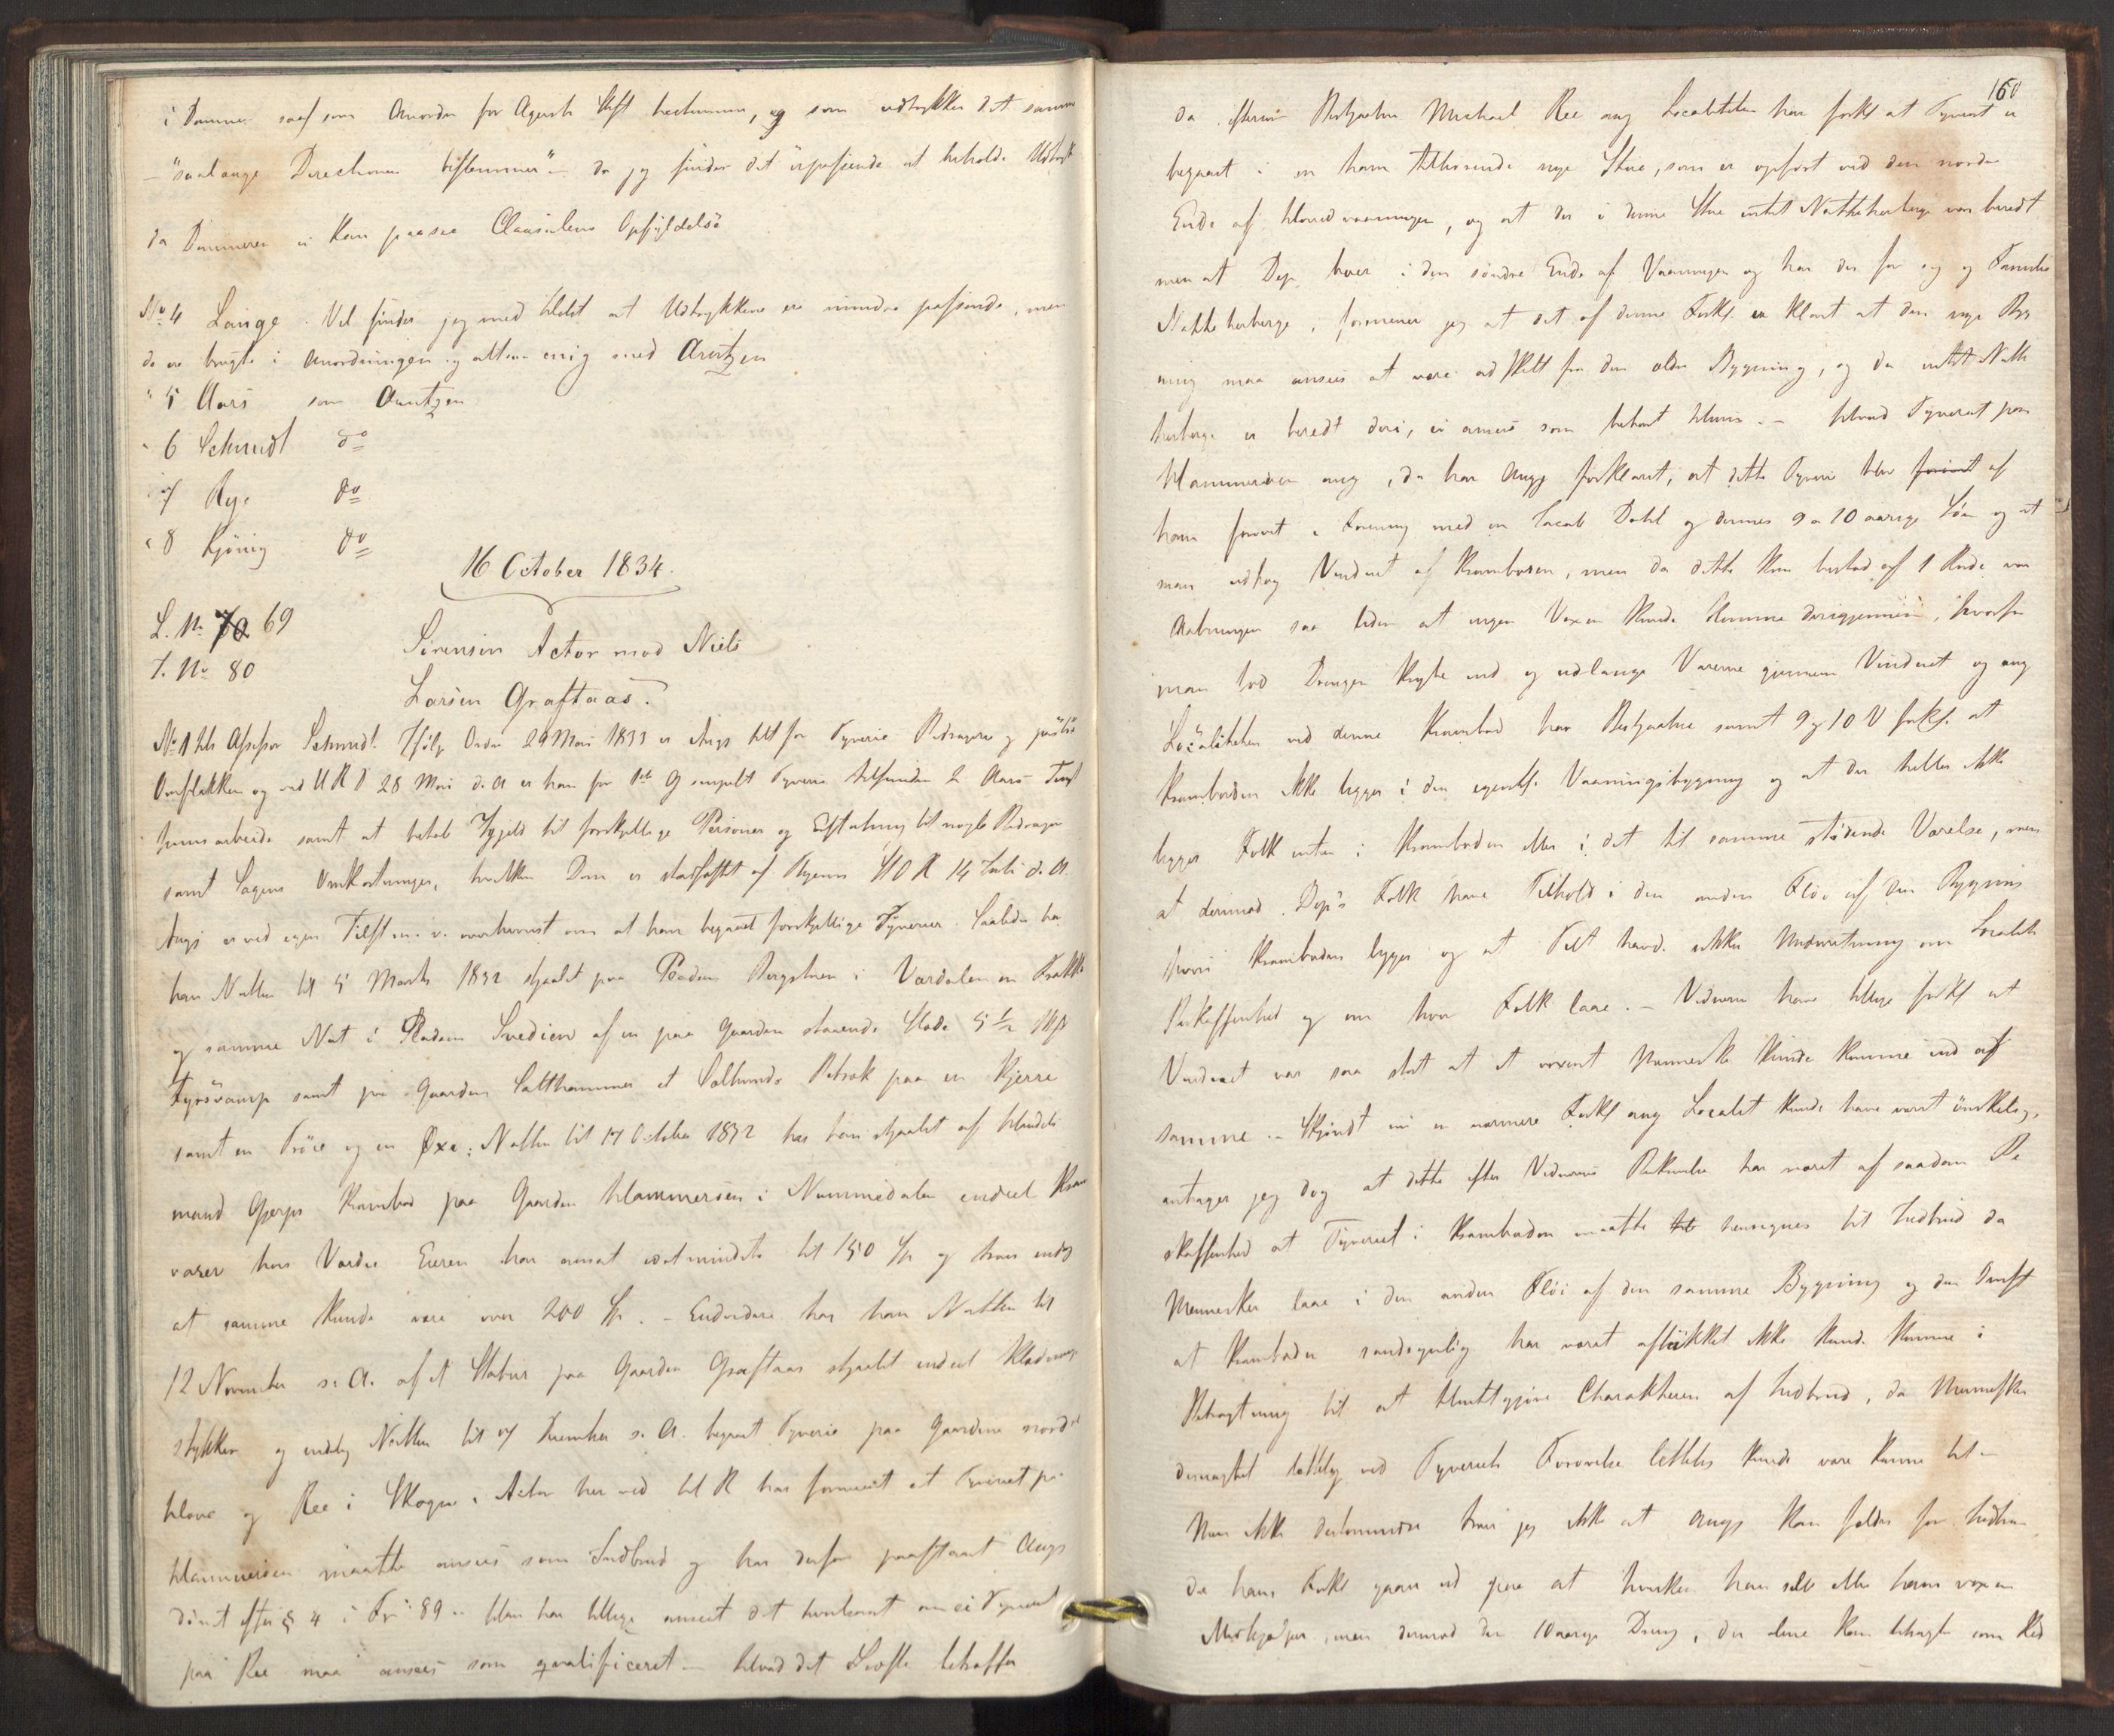 i Dommen saas som Anordn for Agersh Stift bestemmer, og som udtrykker det samme
— "saalange Directionen bestemmer" — da jeg finder det upassende at beholde Udtryk
da Dommeren ei kan paasee Clausulens Opfyldelse
No 4 Lange. Vel finder jeg med Holst at Udtrykkene ere mindre passende, men
de ere brugte i Anordningen og altsaa enig med Arntzen
" 5 Aars som Arntzen
" 6 Schmidt do
" 7 Rye do
" 8 Kjønig do
16 October 1834.
L. No 70 69
T. No 80
Sørensen Actor mod Niels
Larsen Graftaas.
No 1 Hr Assessor Schmidt. Ifølge Ordre 29 Mai 1833 er Angj tilt for Tyverie Bedragerie og
Omflakken og ved U R D 28 Mai d. A er han for 1ste G simpelt Tyverie tilfunden 2 Aars Tugt
huusarbeide samt at betale Igjeld til forskjellige Personer og Erstatning til nogle Bedragne
samt Sagens Omkostninger, hvilken Dom er stadfæstet af Thjems S O R 14 Juli d. A.
Angj er ved egen Tilst m. v. overbeviist om at have begaaet forskjellige Tyverier. Saaledes har
han Natten til 5 Marts 1832 stjaalet paa Pladsen Bergsteen i Værdalen en
og samme Nat i Pladsen Svedien af en paa Gaarden staaende Slæde 5 1/2
samt paa Gaarden Salthammer et Sælhunds Betræk paa en Kjerre
samt en Trøie og en Øxe; Natten til 17 October 1832 har han stjaalet af Handels
mand Gjerps Krambod paa Gaarden Hammersen i Nummedalen endeel Kram
varer hvis Værdie Eieren har ansat idetmindste til 150 Sp og troer endog
at samme kunde være over 200 Sp. — Endvidere har han Natten til
12 November s. A. af et Stabur paa Gaarden Graftaas stjaalet endeel Klædnings
stykker og endelig Natten til 7 December s. A. begaaet Tyverie paa Gaardene nordre
og Ree i Skogn. Actor her ved til R har formeent at Tyveriet paa
Hammersen maatte ansees som Indbrud og har derfor paastaaet Angj
dømt efter § 4 i Fr 89. — Han har tillige anseet det tvivlsomt om ei Tyveriet
paa Ree maa ansees som qvalificeret — Hvad det Sidste betræffer
160
da Bestjaalne Michael Ree ang Localiteten har forkl at Tyveriet er
begaaet i en ham tilhørende nye Stue, som er opført ved den nordre
Ende af Hovedvaaningen, og at der i denne Stue intet Natteherberge var beredt
men at Dep boer i den søndre Ende af Vaaningen og har der for sig og Familie
Natteherberge, formener jeg at det af denne Forkl er klart at den nye Byg
ning maa ansees at være adskilt fra den ældre Bygning, og da intet Natte
herberge er beredt deri, ei ansees som beboet Huus. — Hvad Tyveriet paa
Hammersen ang, da har Angj forklaret, at dette Tyverie blev af
ham forøvet i Forening med en Jacob Dahl og dennes 9 a 10 aarige Søn og at
man udtog Vinduet af Kramboden, men da dette kun bestod af 1 Rude var
Aabningen saa liden at ingen Voxen kunde komme derigjennem, hvorfor
man lod Drengen krybe ind og udlange Varerne gjennem Vinduet og ang
Localiteten ved denne Krambod har Bestjaalne samt 9 og 10 V forkl. at
Kramboden ikke ligger i den egentl. Vaaningsbygning og at der heller ikke
ligger Folk enten i Kramboden eller i det til samme stødende Værelse, men
at derimod Dep's Folk have Tilhold i den anden Fløi af den Bygning
hvori Kramboden ligger og at Tilt havde sikker Underretning om Localitetens
Beskaffenhed og om hvor Folk laae. — Vidnerne have tillige forkl at
Vinduet var saa stort at et voxent Menneske kunde komme ind af
samme. — Skjøndt nu en nærmere Forkl ang Localit kunde have været ønskelig,
antager jeg dog at dette efter Vidnernes Beskrivelse har været af saadan Be
skaffenhed at Tyveriet i Kramboden maatte henregnes til Indbrud da
Mennesker laae i den anden Fløi af den samme Bygning og den Omst
at Kramboden sandsynlig har været aflukket ikke kunde komme i
Betragtning til at tilintetgjøre Characteren af Indbrud, da Mennesker
desuagtet ved Tyveriets Forøvelse lettelig kunde være komne til —
Men ikke destomindre troer jeg ikke at Angj kan fældes for Indbrud
da hans Forkl gaaer ud paa at hverken han selv eller hans voxne
Medhjelper, men derimod den 10 aarige Dreng, der alene kan betragtes som Red